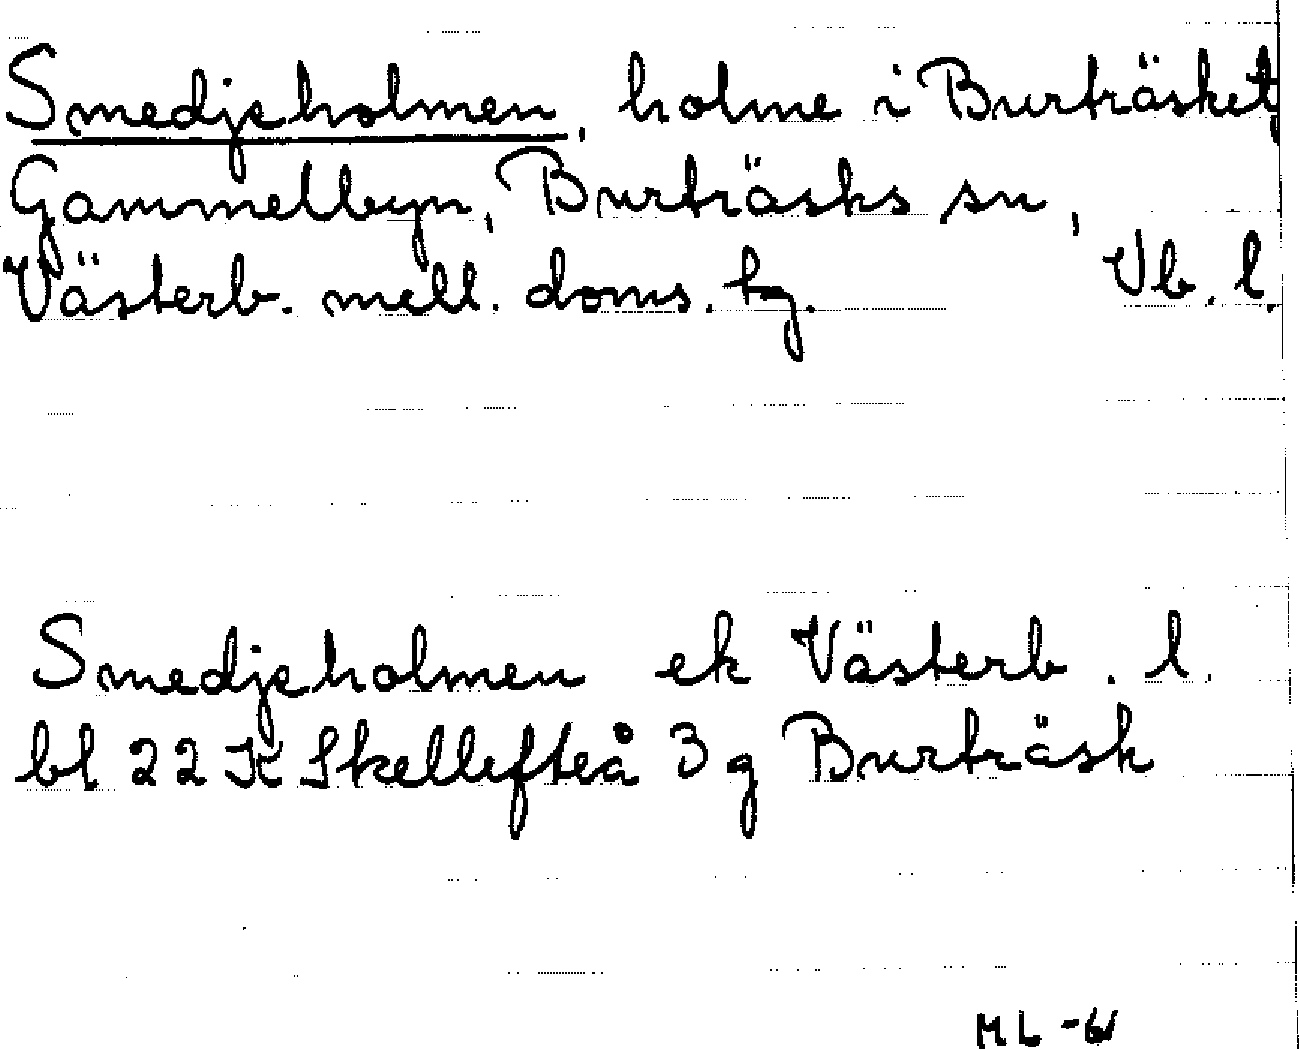 Smedjeholmen, holme i Burträsket,
Gammelbyn, Burträsks sn,
Västerb. mell. doms. tg. Vb. l.
Smedjeholmen ek Västerb. l.
bl 22 K Skellefteå 3 g Burträsk
ML -61